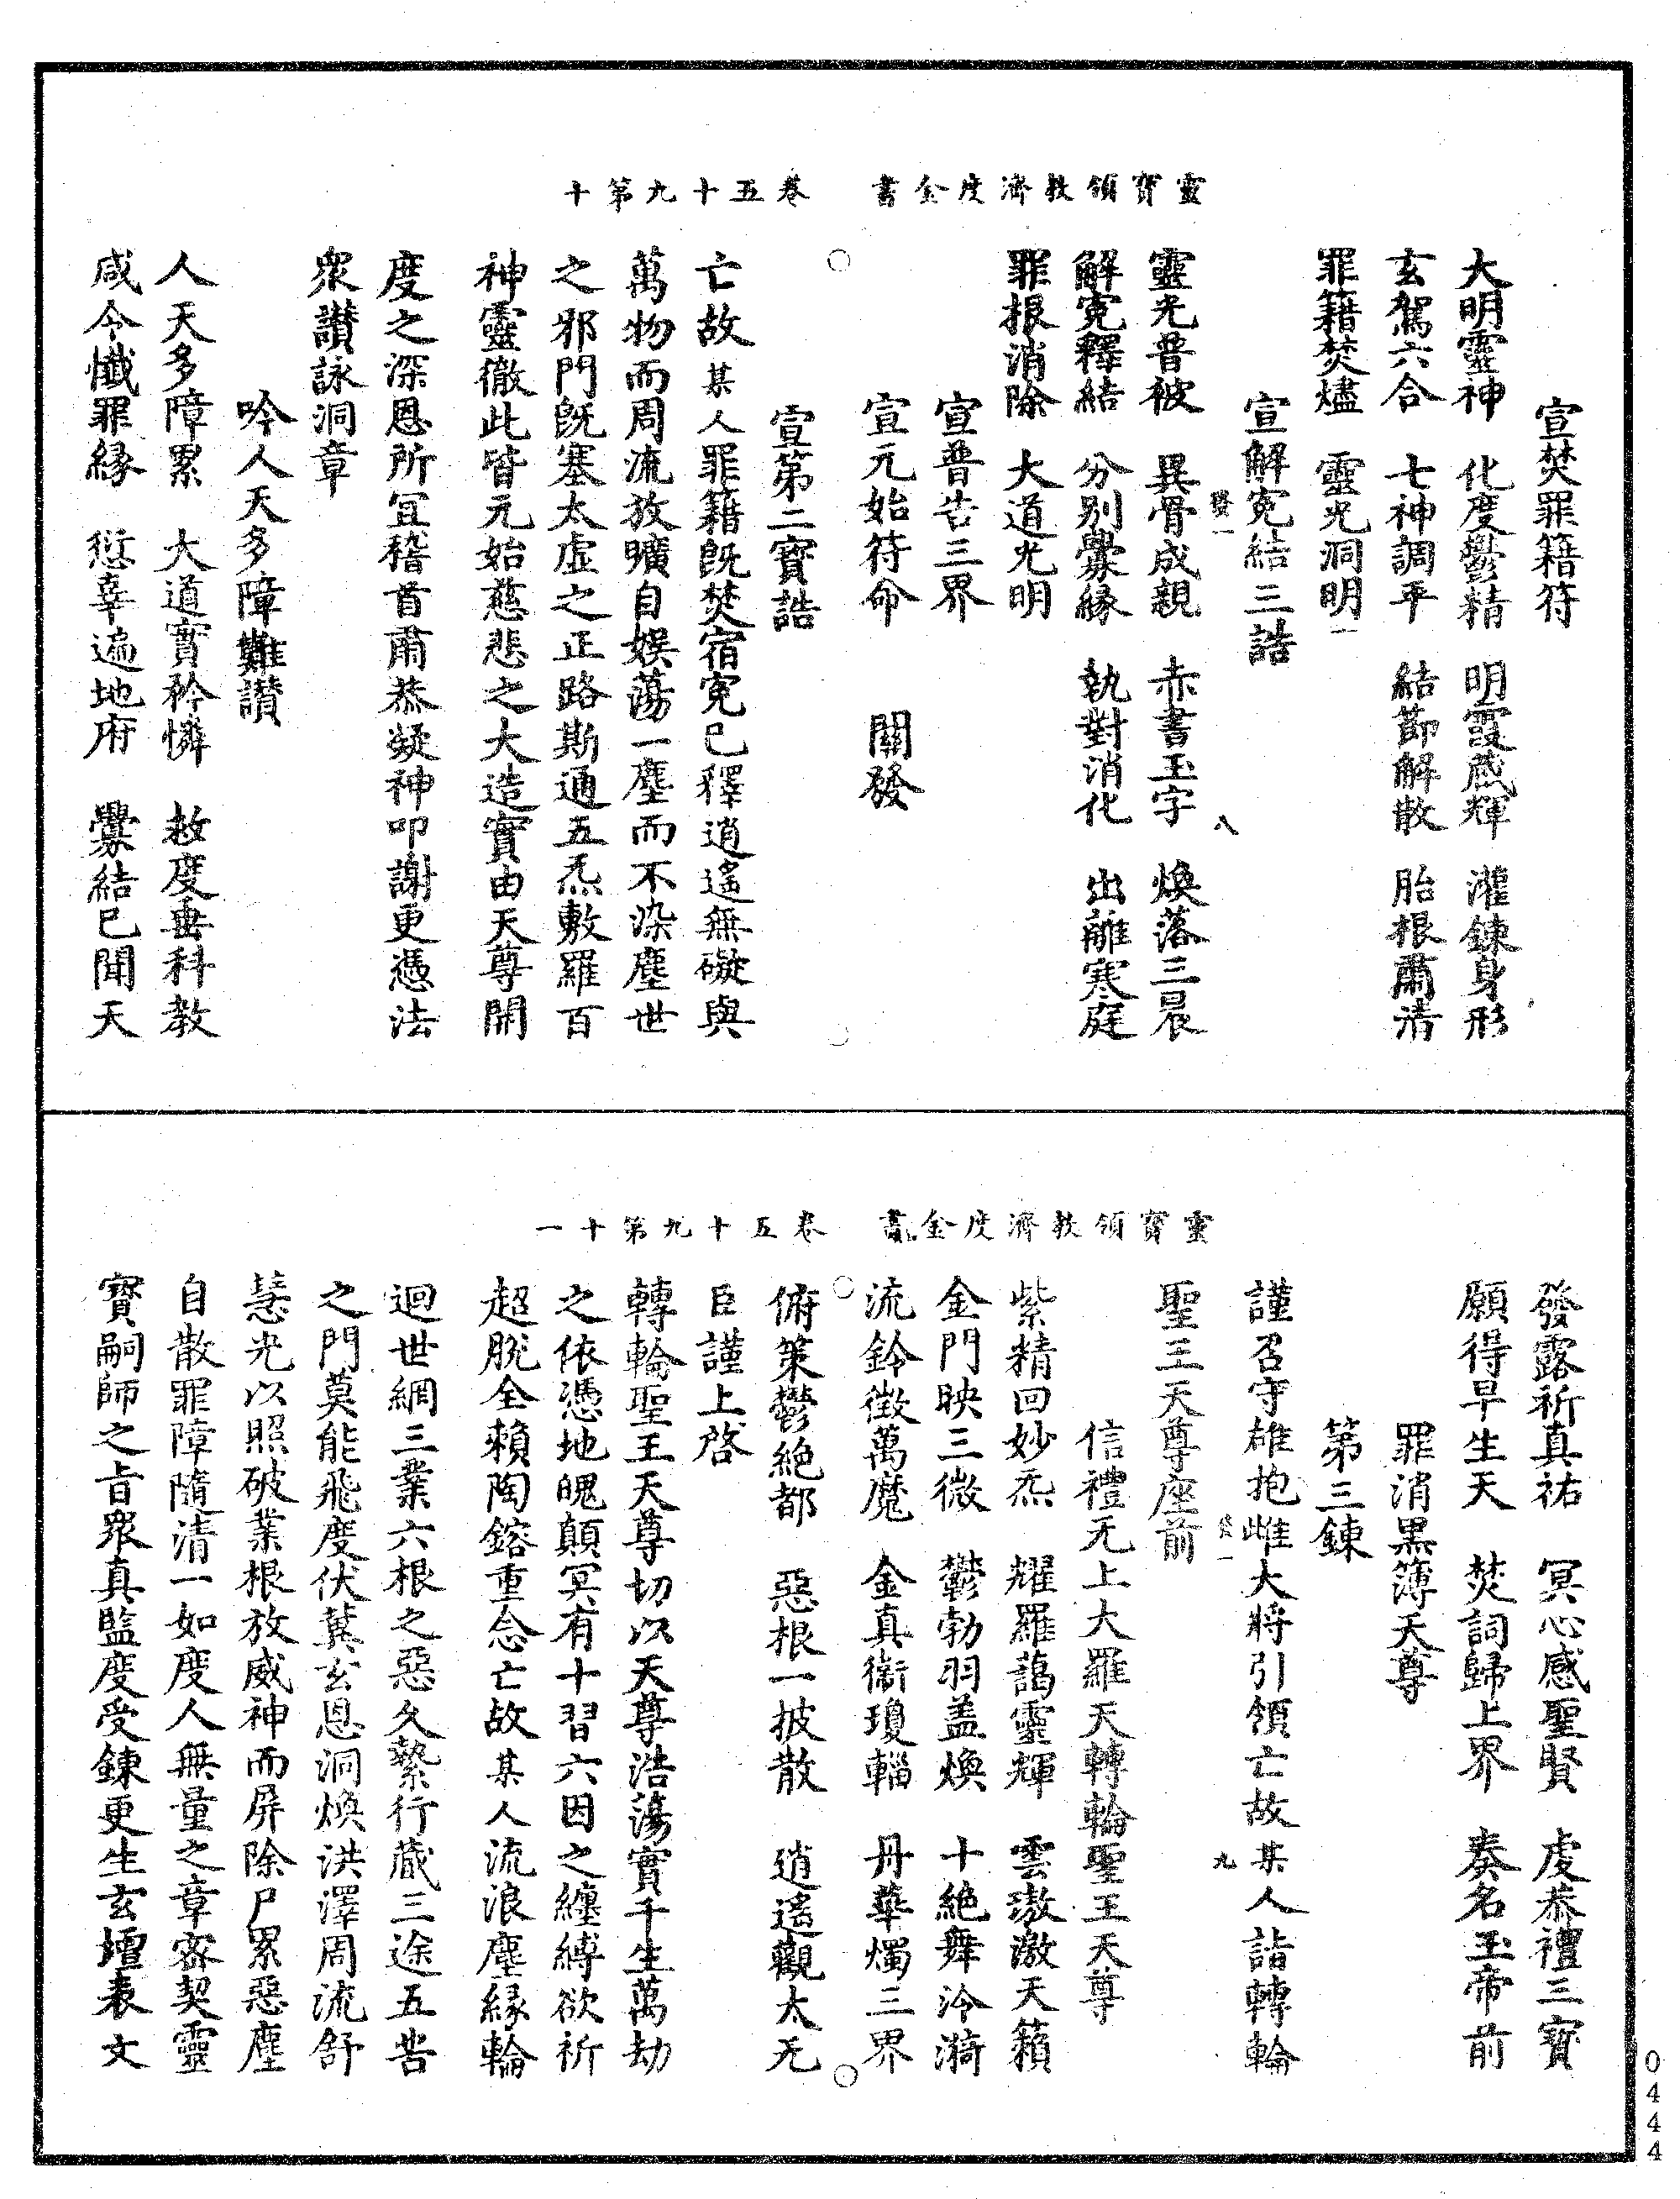 靈寶領教濟度金書　卷五十九第十
宣焚罪籍符
大明靈神　化度鬱精　明霞葳輝　灌鍊身形
玄駕六合　七神調平　結節解散　胎根肅清
罪籍焚燼　靈光洞明
宣解冤結三誥
靈光普被　異骨成親　赤書玉字　煥落三晨
解冤釋結　分別釁緣　執對消化　出離寒庭
罪根消除　大道光明
宣普告三界
宣元始符命　關發
宣第二寶誥
亡故某人罪籍既焚宿冤已釋逍遙無礙與
萬物而周流放曠自娛蕩一塵而不染塵世
之邪門既塞太虛之正路斯通五炁敷羅百
神靈徹此皆元始慈悲之大造實由天尊開
度之深恩所宜稽首肅恭凝神叩謝更憑法
眾讚詠洞章
吟人天多障難讚
人天多障累　大道實矜憐　赦度垂科教
咸令懺罪緣　愆辜遍地府　釁結已聞天
八
靈寶領教濟度金書　卷五十九第十一
發露祈真祐　冥心感聖賢　虔恭禮三寶
願得早生天　焚詞歸上界　奏名玉帝前
罪消黑簿天尊
第三鍊
謹召守雄抱雌大將引領亡故某人詣轉輪
聖王天尊座前
信禮无上大羅天轉輪聖王天尊
紫精回妙炁　耀羅藹靈輝　雲璈激天籟
金門映三微　鬱勃羽蓋煥　十絕舞泠漪
流鈴徵萬魔　金真衛瓊輜　丹華燭三界
俯策鬱絕都　惡根一披散　逍遙觀太无
臣謹上啓
轉輪聖王天尊切以天尊浩蕩實千生萬劫
之依憑地魄顛冥有十習六因之纏縛欲祈
超脫全賴陶鎔重念亡故某人流浪塵緣輪
迴世網三業六根之惡久縶行藏三途五苦
之門莫能飛度伏冀玄恩洞煥洪澤周流舒
慧光以照破業根放威神而屏除尸累惡塵
自散罪障隨清一如度人無量之章密契靈
寶嗣師之旨眾真監度受鍊更生玄壇表文
九
0444